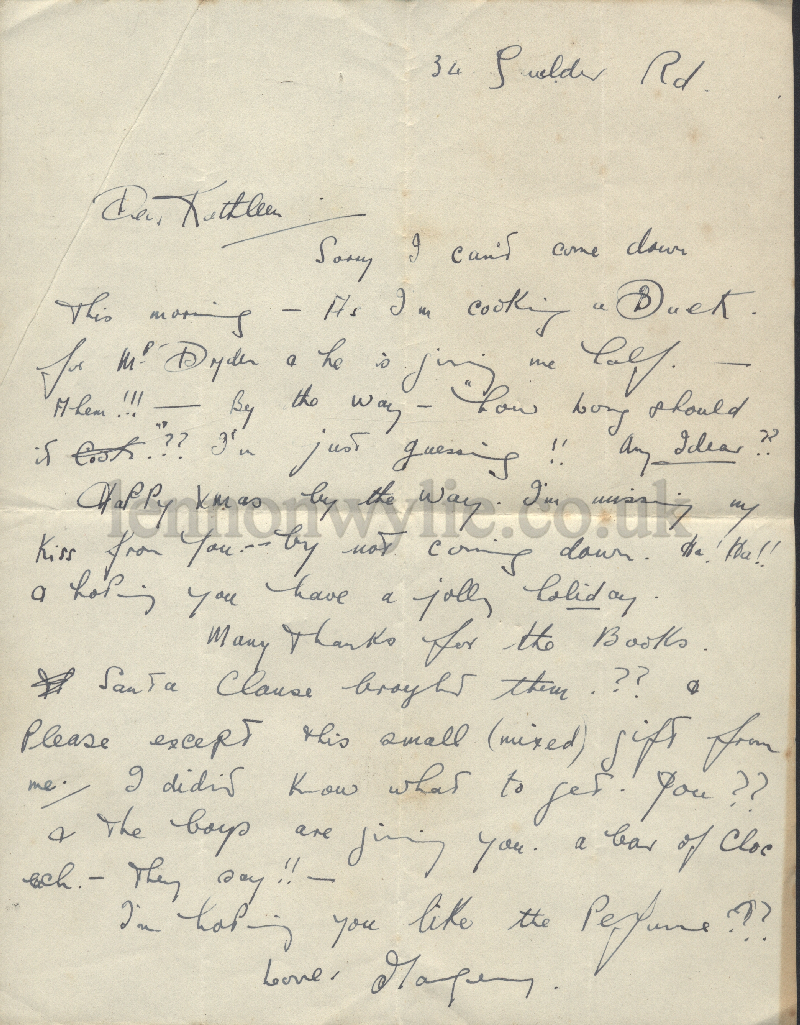 34 Guelder Rd.
Dear Kathleen
Sorry I can't come down
This morning — As I'm cooking a Duck.
for Mr Dryden & he is giving me half. —
Ahem!!! — By the way — "how long should
it Cook"?? I'm just guessing!! Any Idear??
Happy Xmas by the way. I'm missing my
Kiss from you -- by not coming down. Ha! Ha!!
& hoping you have a jolly holiday.
Many Thanks for the Books.
Santa Clause brought them.?? &
Please except this small (mixed) gift from
me. I didn't know what to get. you??
& the boys are giving you. a bar of Choc
each. — They say!! —
I'm hoping you like the Perfume???
Love,
lennonwylie.co.uk